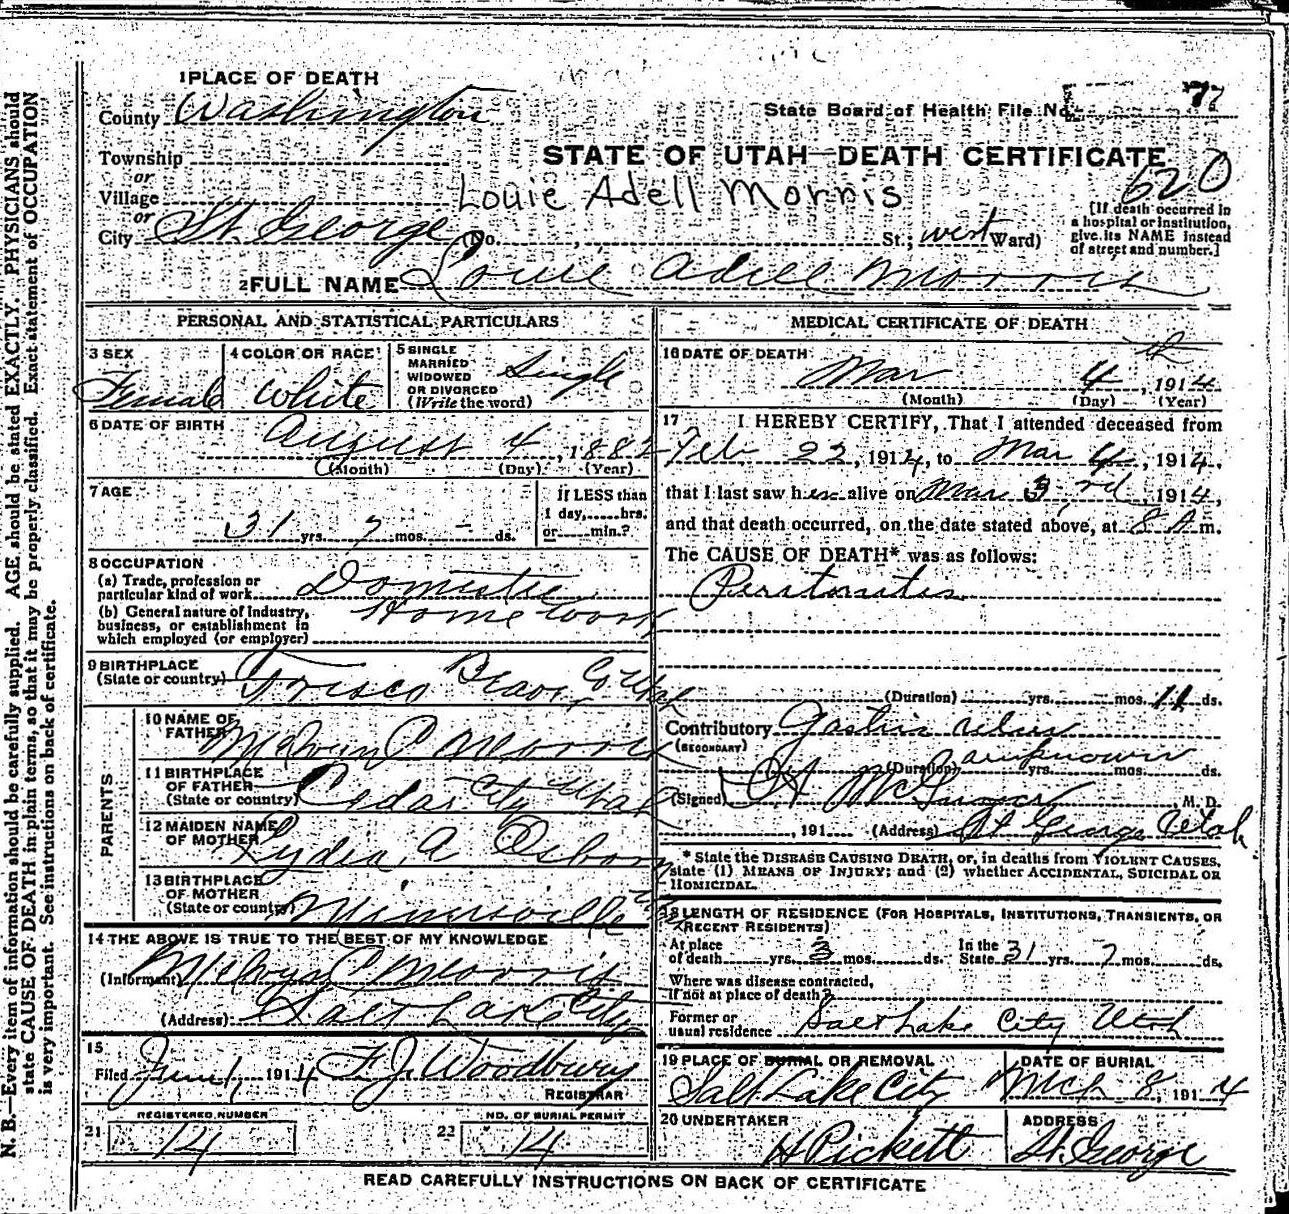 1 PLACE OF DEATH
County Washington
State Board of Health File No. 77
Township
STATE OF UTAH—DEATH CERTIFICATE
or
Village
Louie Adell Morris
620
or
City St. George (No. St.; west Ward)
[If death occurred in a hospital or institution, give its NAME instead of street and number.]
2 FULL NAME Louie Adell Morris
PERSONAL AND STATISTICAL PARTICULARS
3 SEX Female
4 COLOR OR RACE White
5 SINGLE MARRIED WIDOWED OR DIVORCED (Write the word) Single
6 DATE OF BIRTH August 4, 1882
(Month) (Day) (Year)
7 AGE 31 yrs. 7 mos. - ds.
If LESS than 1 day, hrs. or min.?
8 OCCUPATION
(a) Trade, profession or particular kind of work Domestic
(b) General nature of industry, business, or establishment in which employed (or employer) Home Work
9 BIRTHPLACE (State or country) Frisco Beaver Co Utah
PARENTS
10 NAME OF FATHER Melvin C Morris
11 BIRTHPLACE OF FATHER (State or country) Cedar City Utah
12 MAIDEN NAME OF MOTHER Lydia A Osborn
13 BIRTHPLACE OF MOTHER (State or country) Minersville
14 THE ABOVE IS TRUE TO THE BEST OF MY KNOWLEDGE
(Informant) Melvyn C Morris
(Address) Salt Lake City
15
Filed June 1, 1914 F. J. Woodbury
REGISTRAR
REGISTERED NUMBER
21 14
NO. OF BURIAL PERMIT
22 14
MEDICAL CERTIFICATE OF DEATH
16 DATE OF DEATH Mar 4th, 1914
(Month) (Day) (Year)
17 I HEREBY CERTIFY, That I attended deceased from
Feb 22, 1914, to Mar 4, 1914,
that I last saw her alive on Mar 3rd, 1914,
and that death occurred, on the date stated above, at 8 A m.
The CAUSE OF DEATH* was as follows:
Peritonitis
(Duration) yrs. mos. 11 ds.
Contributory Gastric ulcer
(SECONDARY)
(Duration) unknown yrs. mos. ds.
(Signed) McGregor M. D.
, 191 (Address) St George Utah
* State the DISEASE CAUSING DEATH, or, in deaths from VIOLENT CAUSES,
state (1) MEANS OF INJURY; and (2) whether ACCIDENTAL, SUICIDAL OR
HOMICIDAL.
18 LENGTH OF RESIDENCE (FOR HOSPITALS, INSTITUTIONS, TRANSIENTS, OR RECENT RESIDENTS)
At place of death yrs. 3 mos. ds. In the State 31 yrs. 7 mos. ds.
Where was disease contracted,
if not at place of death?
Former or usual residence Salt Lake City Utah
19 PLACE OF BURIAL OR REMOVAL Salt Lake City
DATE OF BURIAL Mch 8, 1914
20 UNDERTAKER H Pickett
ADDRESS St. George
READ CAREFULLY INSTRUCTIONS ON BACK OF CERTIFICATE
N. B.—Every item of information should be carefully supplied. AGE should be stated EXACTLY. PHYSICIANS should
state CAUSE OF DEATH in plain terms, so that it may be properly classified. Exact statement of OCCUPATION
is very important. See instructions on back of certificate.